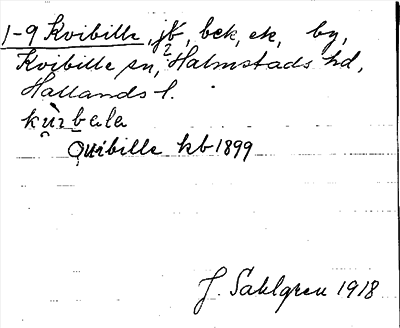 1-9 Kvibille, jb, bck, ek, by,
Kvibille sn, Halmstads hd,
Hallands l.
Quibille kb 1899
J. Sahlgren 1918